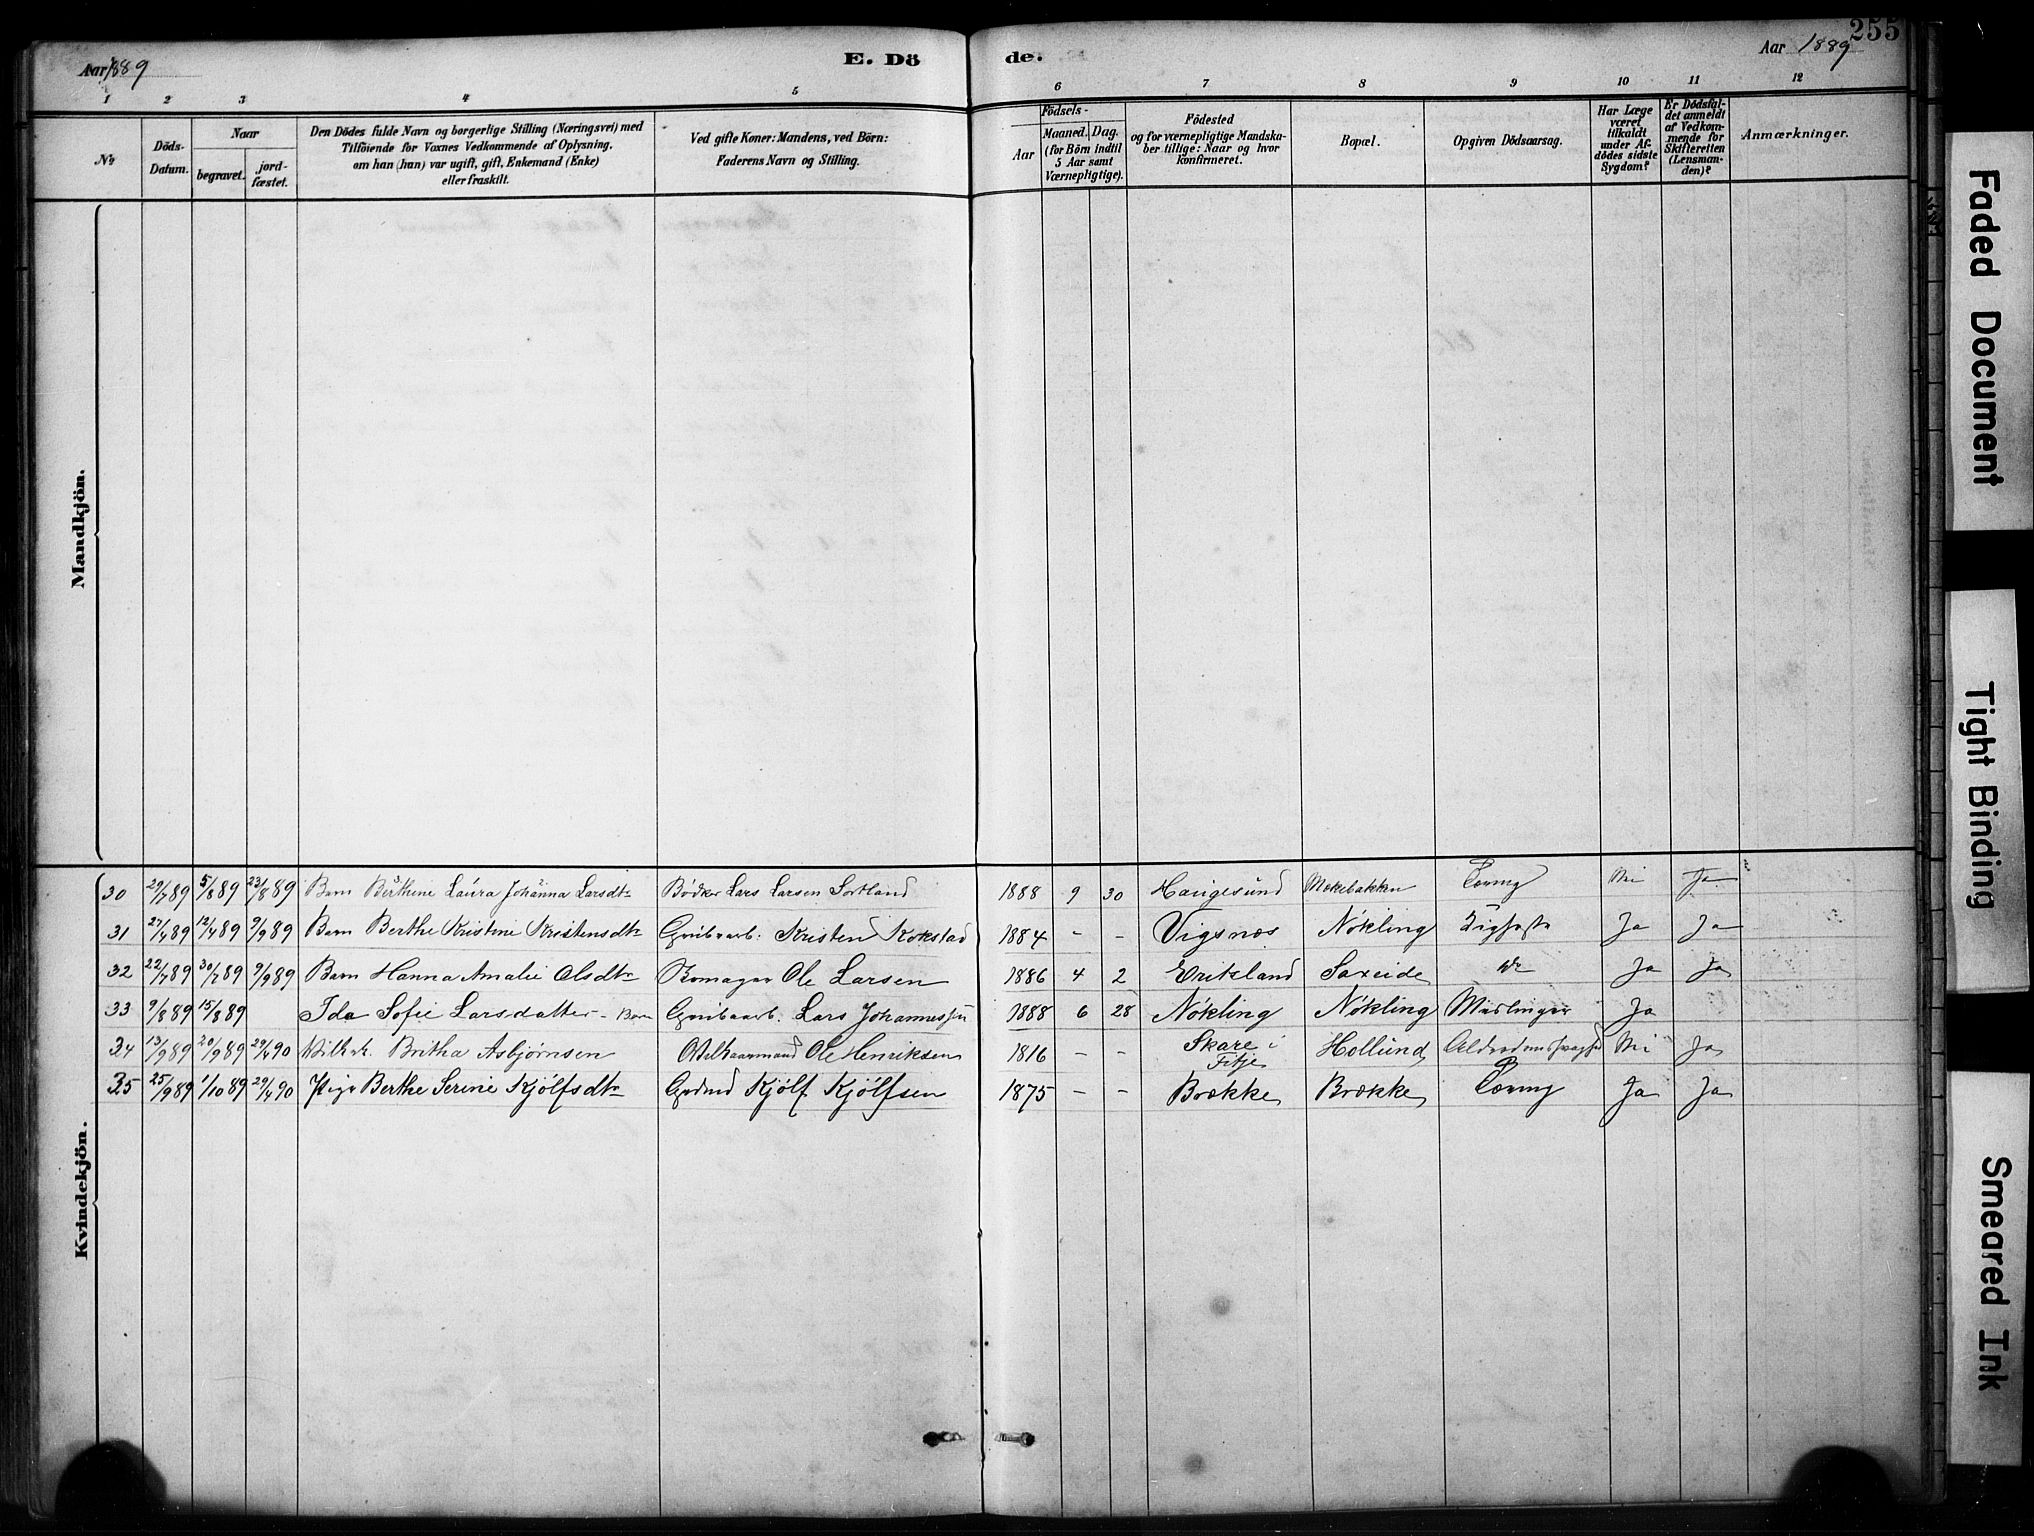 255
Aar 1889
E. Dö
de.
Aar 1889
1 2 3 4 5 6 7 8 9 10 11 12
No
Döds-
Datum.
Naar
begravet.
jord-
fæstet.
Den Dödes fulde Navn og borgerlige Stilling (Næringsvei) med
Tilföiende for Voxnes Vedkommende af Oplysning,
om han (hun) var ugift, gift, Enkemand (Enke)
eller fraskilt.
Ved gifte Koner: Mandens, ved Börn:
Faderens Navn og Stilling.
Födsels-
Aar
Maaned. Dag.
(for Börn indtil
5 Aar samt
Værnepligtige).
Födested
og for værnepligtige Mandska-
ber tillige: Naar og hvor
konfirmeret.
Bopæl.
Opgiven Dödsaarsag.
Har Læge
været
tilkaldt
under Af-
dödes sidste
Sygdom?
Er Dödsfal-
det anmeldt
af Vedkom-
mende for
Skifteretten
(Lensman-
den)?
Anmærkninger.
Mandkjön.
Kvindekjön.
30 29/7 89 5/8 89 23/8 89 Barn Berthine Laura Johanna Larsdtr Bødker Lars Larsen Sortland 1888 9 30 Haugesund Møkebakken Tæring Nei Ja
31 27/4 89 12/4 89 9/9 89 Barn Berthe Kristine Kristensdtr Grubearb. Kristen Kokstad 1884 - - Vigsnæs Nøkling Ja Ja
32 22/7 89 30/7 89 9/9 89 Barn Hanna Amalie Olsdtr Ole Larsen 1886 4 2 Erikland Saxeide Ja Ja
33 9/8 89 15/8 89 Ida Sofie Larsdatter - Barn Grubearb. Lars Johannessen 1888 6 28 Nøkling Nøkling Mæslinger Ja
34 13/9 89 20/9 89 29/4 90 Britha Asbjørnsen Ole Henriksen 1816 - - Skare i Fitje Hollund Alderdomssvaghed Nei Ja
35 25/9 89 1/10 89 29/4 90 Pige Berthe Serine Kjølfsdtr Grdmd Kjølf Kjølfsen 1875 - - Brække Brække Tæring Ja Ja
Faded Document
Tight Binding
Smeared Ink